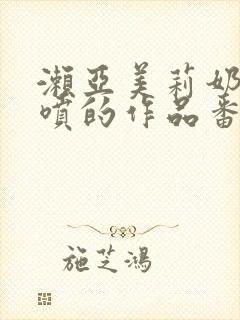 瀬亞美莉奶
噴的作品番
施芝鴻